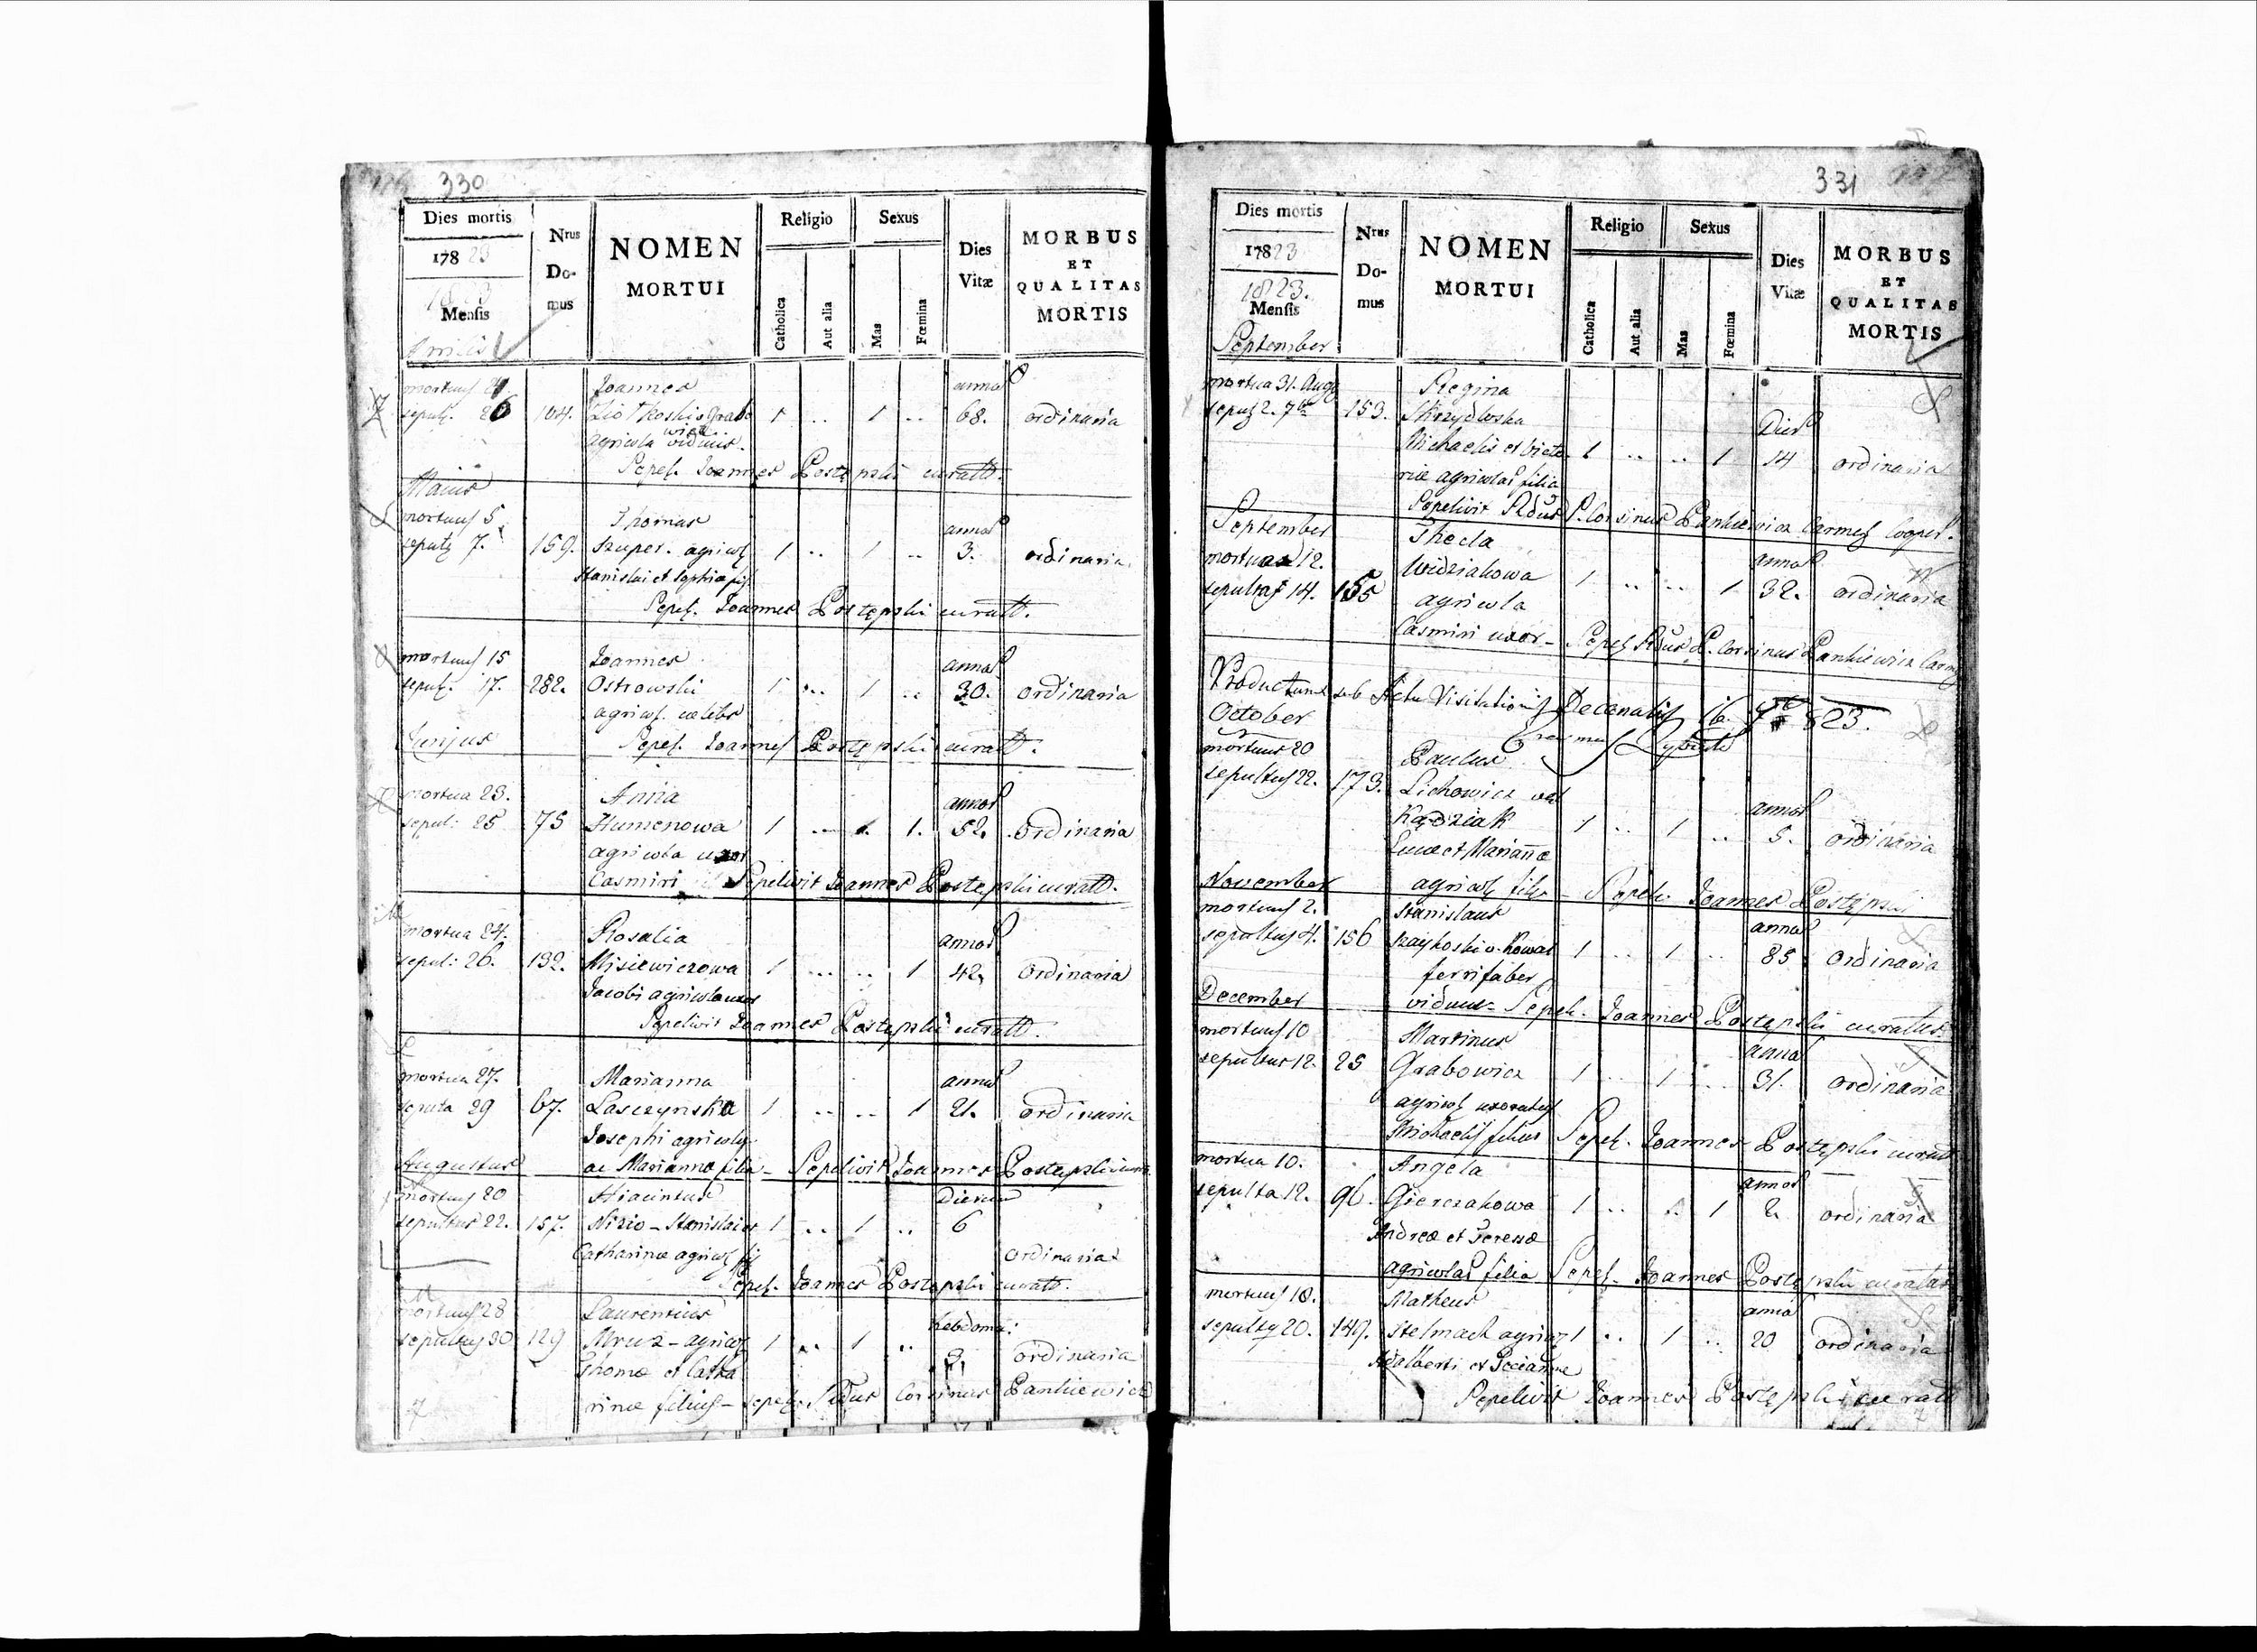 330
Dies mortis
Nrus Domus
NOMEN MORTUI
Religio
Sexus
Dies Vitæ
MORBUS ET QUALITAS MORTIS
178 23
1823
Mensis
Catholica
Aut alia
Mas
Fœmina
Aprilis
Joannes annor
sepult. 26 104. 1 .. 1 .. 68. ordinaria
agricola viduus.
Sepel. Joannes Postępski curatt.
Maius
mortuus 5. Thomas annor
sepult 7. 159. Szuper. agricol 1 .. 1 .. 3. ordinaria
Stanislai et Sophia fil
Sepel. Joannes Postępski curatt.
mortuus 15 Joannes annor
sepul. 17. 282. Ostrowski 1 .. 1 .. 30. ordinaria
agricol. celebs
Junius Sepel. Joannes Postępski curatt.
mortua 23. Anna annor
sepul: 25 75 Humenowa 1 .. 1. 52. ordinaria
agricola uxor
Casmiri Sepelivit Joannes Postępski curatt.
mortua 24. Rosalia annor
sepul: 26. 132. Misiewiczowa 1 .. .. 1 42. ordinaria
Jacobi agricola uxor
Sepelivit Joannes Postępski curatt.
mortua 27. Marianna annor
sepulta 29 67. Lasczynska 1 .. .. 1 21. ordinaria
Josephi agricola
Augustus ac Marianna filia - Sepelivit Joannes Postępski
mortuus 20 Hiacintus Dierum
sepultus 22. 157. Nizio - Stanislai et 1 .. 1 .. 6
Catharinæ agricol fil ordinaria
Sepel. Joannes Postępski curatt.
mortuus 28 Laurentius hebdoma:
sepultus 30 129 Mruz - agricol 1 .. 1 .. 3. ordinaria
Thomæ et Catha
rinæ filius - sepel. Rdus Corsinus Pankiewicz
331
Dies mortis
Nrus Domus
NOMEN MORTUI
Religio
Sexus
Dies Vitæ
MORBUS ET QUALITAS MORTIS
178 23
1823.
Mensis
Catholica
Aut alia
Mas
Fœmina
September
mortua 31. Aug Regina
sepul 2. 7br 153. Skrzydlowska Dier
Michaelis et Victo 1 .. .. 1 14 ordinaria
riæ agricolar filia
Sepelivit Rdus P. Corsinus Pankiewicz Carmel Cooper.
September Thecla
mortua 12. Widziakowa annor
sepulta 14. 155 agricola 1 .. .. 1 32. ordinaria
Casmiri uxor - Sepel Rdus P. Corsinus Pankiewicz
Productum sub Actu Visitationis Decanalis 16. 823.
October
mortuus 20 Paulus
sepultus 22. 173. Lichowicz vel annor
Kaдziak 1 .. 1 .. 5. ordinaria
Lucæ et Mariannæ
November agricol filius - Sepel. Joannes Postępski
mortuus 2. Stanislaus annor
sepultus 4. 156 1 .. 1 .. 85 ordinaria
ferrifaber
December viduus - Sepel. Joannes Postępski curatus
mortuus 10 Martinus annor
sepultus 12. 25 Grabowicz 1 .. 1 .. 31. ordinaria
agricol uxoratus
Michaelis filius Sepel. Joannes Postępski curatt
mortua 10. Angela annor
sepulta 12. 96. Gierczakowa 1 .. 1 2. ordinaria
Andreæ et Teressæ
agricolar filia Sepel. Joannes Postępski curatus
mortuus 18. Matheus annor
sepultus 20. 149. Stelmach agricol 1 .. 1 .. 20 ordinaria
Adalberti et
Sepelivit Joannes Postępski curatt